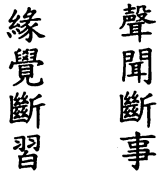 聲聞斷事
緣覺斷習